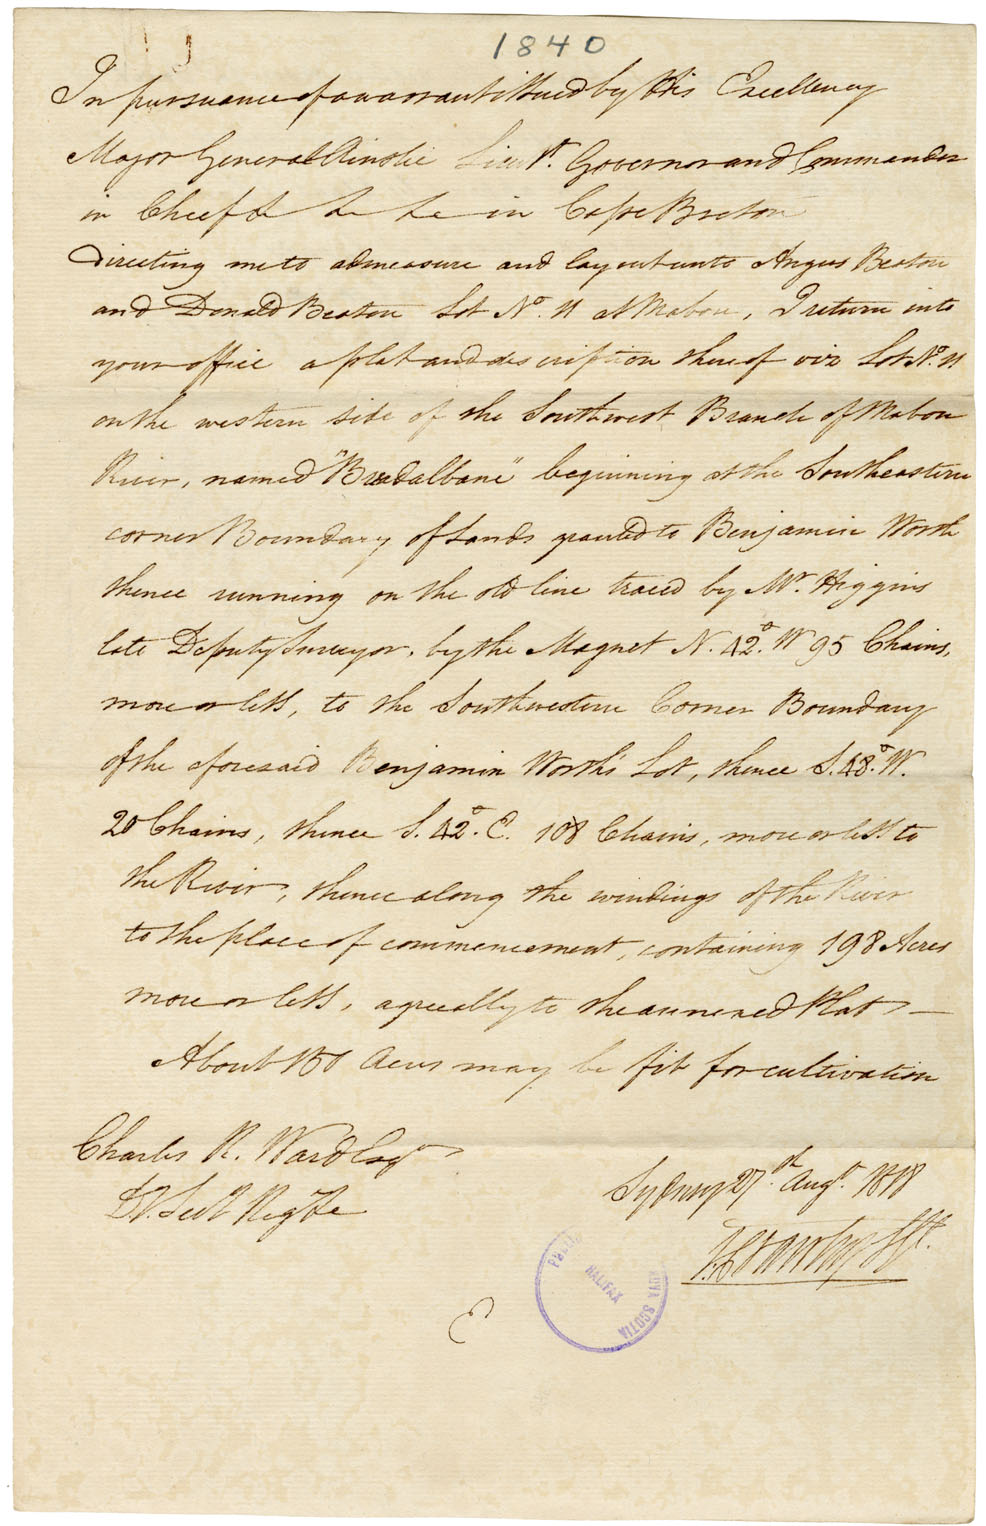 1840
In pursuance of a warrant issued by His Excellency
Major General Ainslie Lieut. Governor and Commander
in Cheef &c &c &c in Cape Breton
Directing me to admeasure and lay out unto Angus Beaton
and Donald Beaton Lot No. 11 at Mabou, I return into
your office a plat and description thereof viz Lot No. 11
on the western side of the Southwest Branch of Mabou
River, named "Bredalbane" beginning at the Southeastern
corner Boundary of Lands granted to Benjamin Worth
thence running on the old line traced by Mr. Higgins
late Deputy Surveyor, by the Magnet N. 42°. W 95 Chains,
more or less, to the Southwestern Corner Boundary
of the aforesaid Benjamin Worth's Lot, thence S. 48°. W.
20 Chains, thence S. 42°. E. 108 Chains, more or less to
the River, thence along the windings of the River
to the place of commencement, containing 198 Acres
more or less, agreeably to the annexed Plat —
About 150 Acres may be fit for cultivation
Charles R. Ward Esqr
Secy Regr &c
Sydney 27th. Augt. 1818
HALIFAX
NOVA SCOTIA